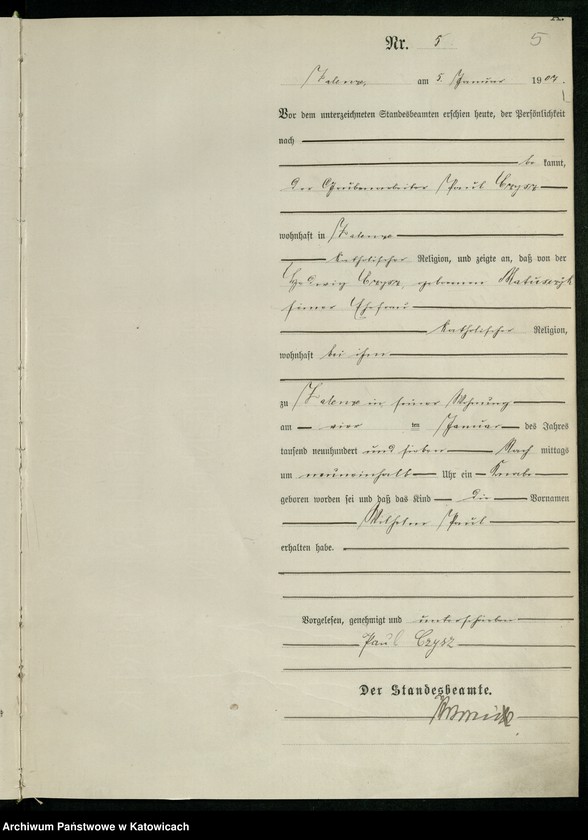 Nr. 5
5
Zalenze am 5 Januar 1907.
Vor dem unterzeichneten Standesbeamten erschien heute, der Persönlichkeit
nach
be kannt,
der Grubenarbeiter Paul Czysz
wohnhaft in Zalenze
katholischer Religion, und zeigte an, daß von der
Hedwig Czysz, geborenen Matuszczyk
seiner Ehefrau
katholischer Religion,
wohnhaft bei ihm
zu Zalenze in seiner Wohnung
am vier ten Januar des Jahres
tausend neunhundert und sieben Nach mittags
um neuneinhalb Uhr ein Knabe
geboren worden sei und daß das Kind die Vornamen
Wilhelm Paul
erhalten habe.
Vorgelesen, genehmigt und unterschrieben
Paul Czysz
Der Standesbeamte.
Archiwum Państwowe w Katowicach